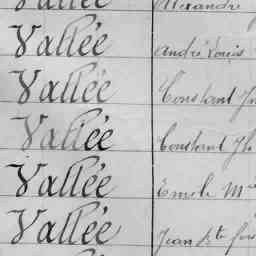 Vallée Alexandre
Vallée André Louis
Vallée Constant
Vallée Constant
Vallée Emile
Vallée Jean Bte